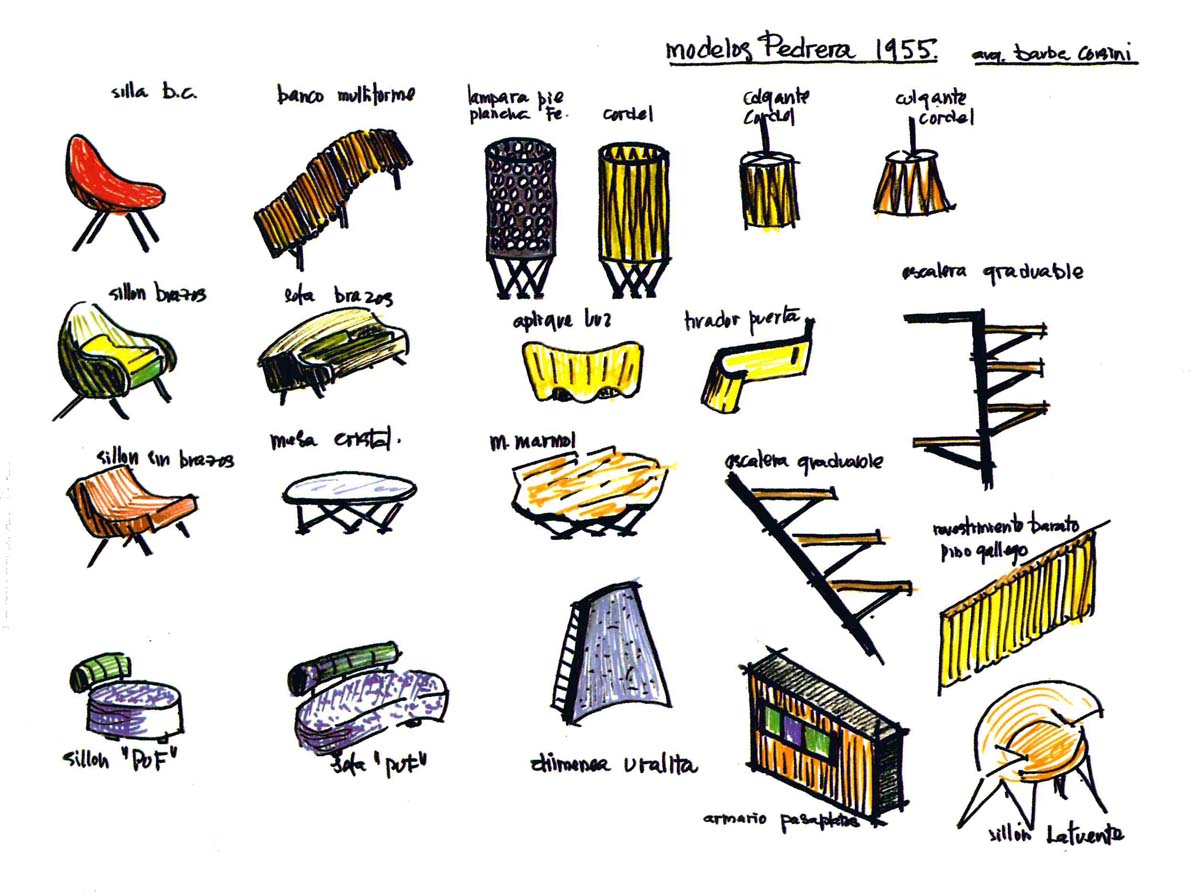 modelos Pedrera 1955. arq. barba corsini
silla b.c.
banco multiforme
lampara pie
plancha Fe.
cordel
colgante
cordel
colgante
cordel
sillon brazos
sofa brazos
aplique luz
tirador puerta
escalera graduable
sillon sin brazos
mesa cristal.
m. marmol
escalera graduable
revestimiento barato
pino gallego
sillon "PUF"
sofa "PUF"
chimenea uralita
armario pasaplatos
sillón Lafuente